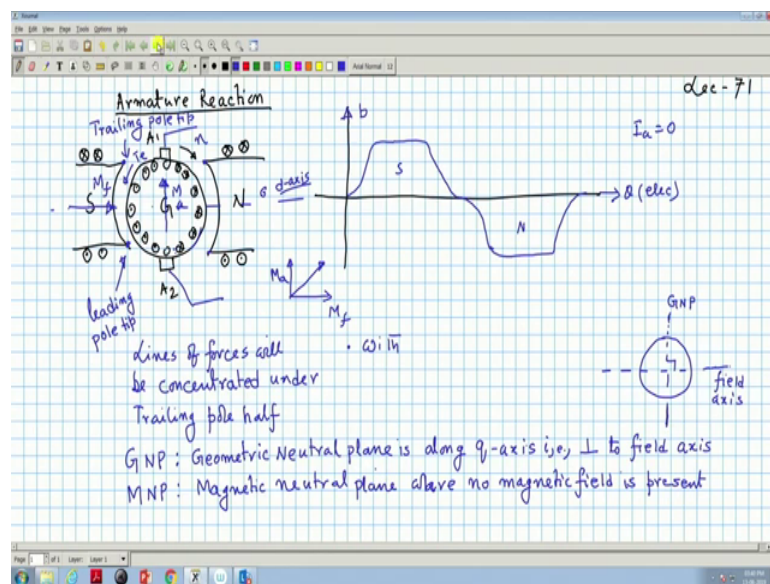 Journal
File Edit View Page Tools Options Help
Arial Normal 12
Lec-71
Armature Reaction
Trailing pole tip
A1
n
Te
Mf
S
G
Ma
N
d-axis
A2
leading
pole tip
b
S
N
θ (elec)
Ia = 0
Ma
Mf
GNP
field
axis
Lines of forces will
be concentrated under
Trailing pole half
• with
GNP : Geometric Neutral plane is along q-axis i,e, ⊥ to field axis
MNP : Magnetic neutral plane where no magnetic field is present
Page 1 of 1 Layer: Layer 1